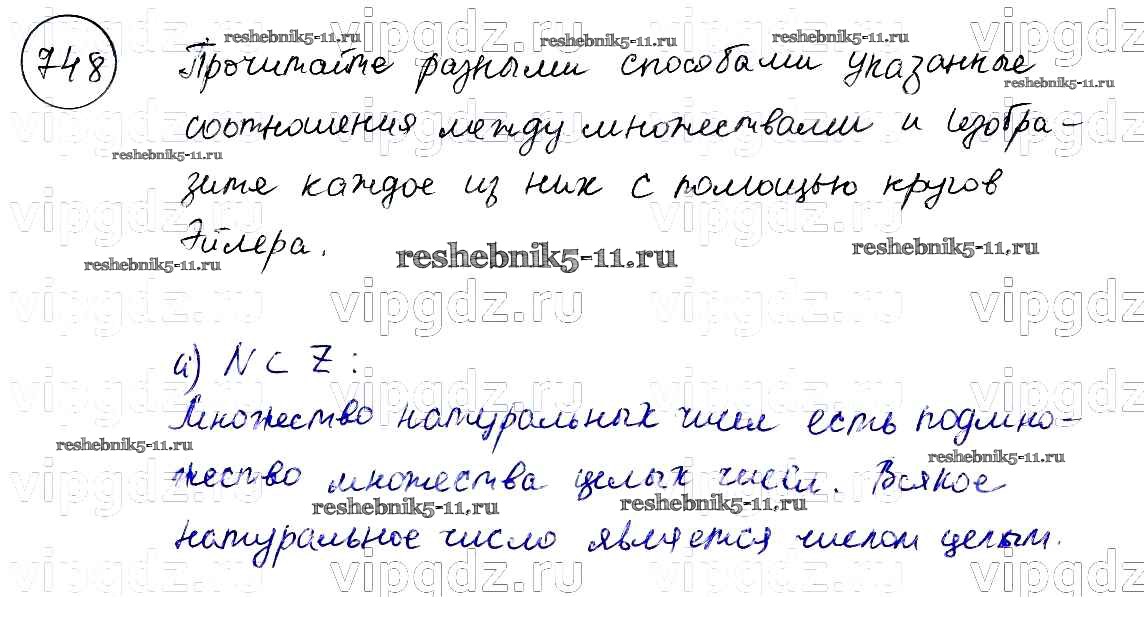 748
Прочитайте разными способами указанные
соотношения между множествами и изобра-
зите каждое из них с помощью кругов
Эйлера.
а) N ⊂ Z:
Множество натуральных чисел есть подмно-
жество множества целых чисел. Всякое
натуральное число является числом целым.
reshebnik5-11.ru
vipgdz.ru